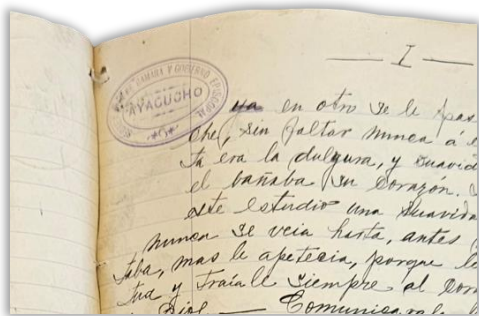 I
CAMARA Y GOBIERNO EPISCOPAL
AYACUCHO
ya en otro se le pas
che, sin faltar nunca á e
ta era la dulzura, y suavid
el bañaba su corazón.
este estudio una suavida
nunca se veia harta, antes
taba, mas le apetecia, porque le
tud y traiale siempre al cora
Dios — Comunicaral